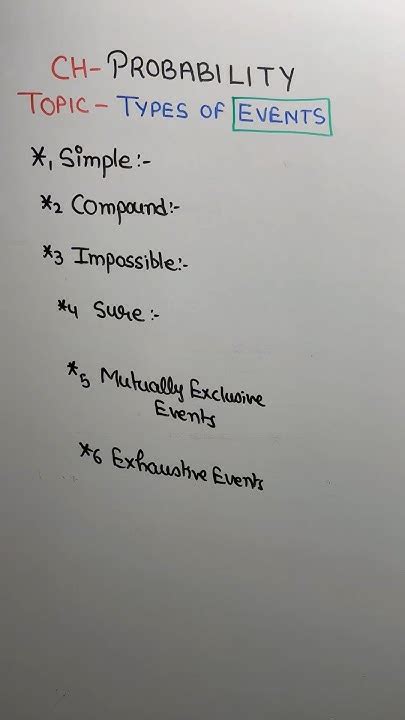 CH- PROBABILITY
TOPIC - TYPES OF EVENTS
*1 Simple:-
*2 Compound:-
*3 Impossible:-
*4 Sure:-
*5 Mutually Exclusive
Events
*6 Exhaustive Events